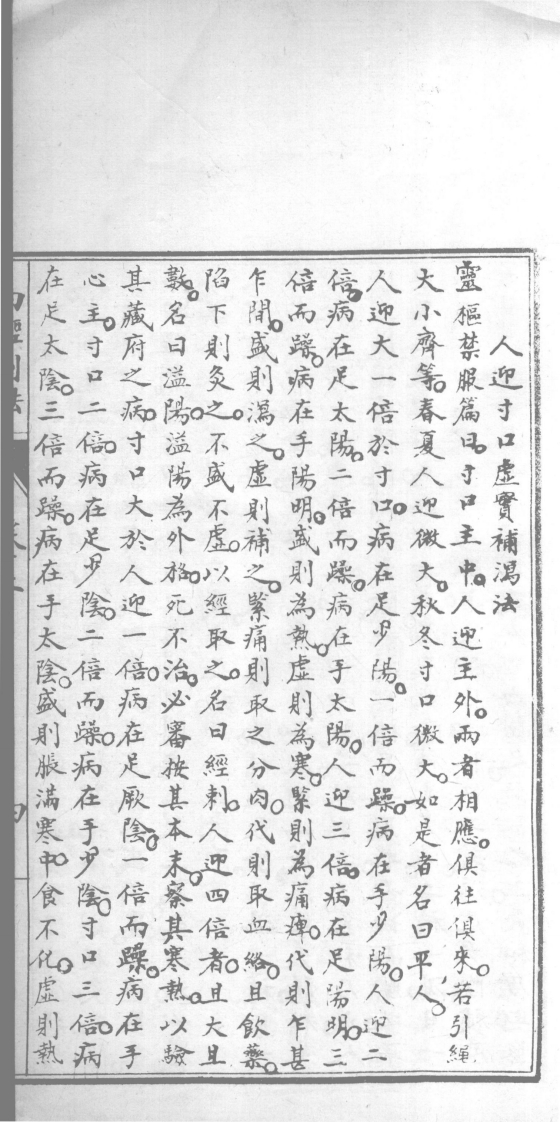 人迎寸口虛實補瀉法
靈樞禁服篇曰。寸口主中。人迎主外。兩者相應。俱往俱來。若引繩
大小齊等。春夏人迎微大。秋冬寸口微大。如是者名曰平人。
人迎大一倍於寸口。病在足少陽。一倍而躁。病在手少陽。人迎二
倍。病在足太陽。二倍而躁。病在手太陽。人迎三倍。病在足陽明。三
倍而躁。病在手陽明。盛則為熱。虛則為寒。緊則為痛痺。代則乍甚
乍間。盛則瀉之。虛則補之。緊痛則取之分肉。代則取血絡。且飲藥。
陷下則灸之。不盛不虛。以經取之。名曰經刺。人迎四倍者。且大且
數。名曰溢陽。溢陽為外格。死不治。必審按其本末。察其寒熱。以驗
其藏府之病。寸口大於人迎一倍。病在足厥陰。一倍而躁。病在手
心主。寸口二倍。病在足少陰。二倍而躁。病在手少陰。寸口三倍。病
在足太陰。三倍而躁。病在手太陰。盛則脹滿寒中。食不化。虛則熱